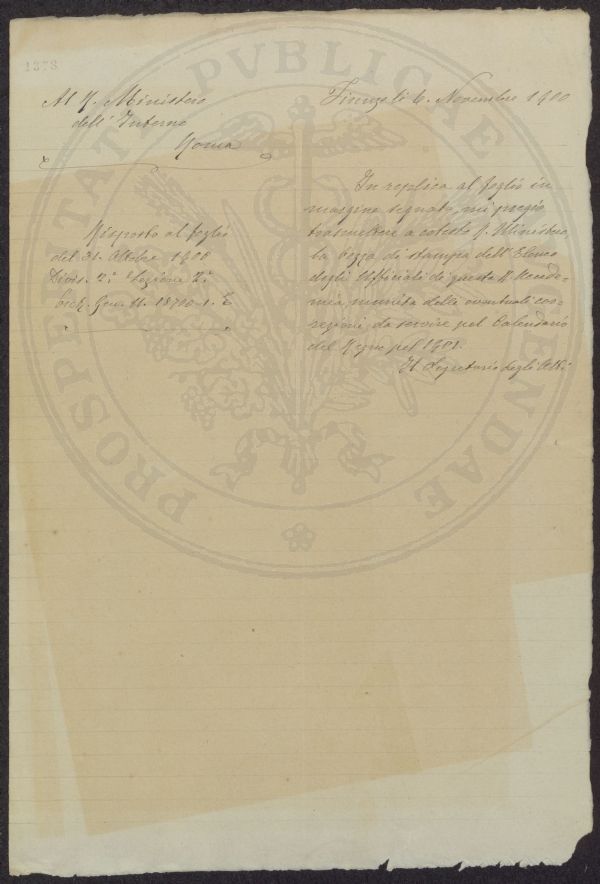 1373
Al R. Ministero
dell' Interno
Roma
Risposta al foglio
del 31. Ottobre 1900
Divis. 2.ª Sezione 2.ª
Firenze li 6. Novembre 1900
In replica al foglio in
margine segnato, mi pregio
trasmettere a cotesto R. Ministero,
la bozza di stampa dell' Elenco
degli Ufficiali di questa R. Accade-
mia munita delle eventuali cor-
rezioni da servire pel Calendario
del Regno pel 1901.
Il Segretario degli Atti
PROSPERITATI PVBLICAE AVGENDAE